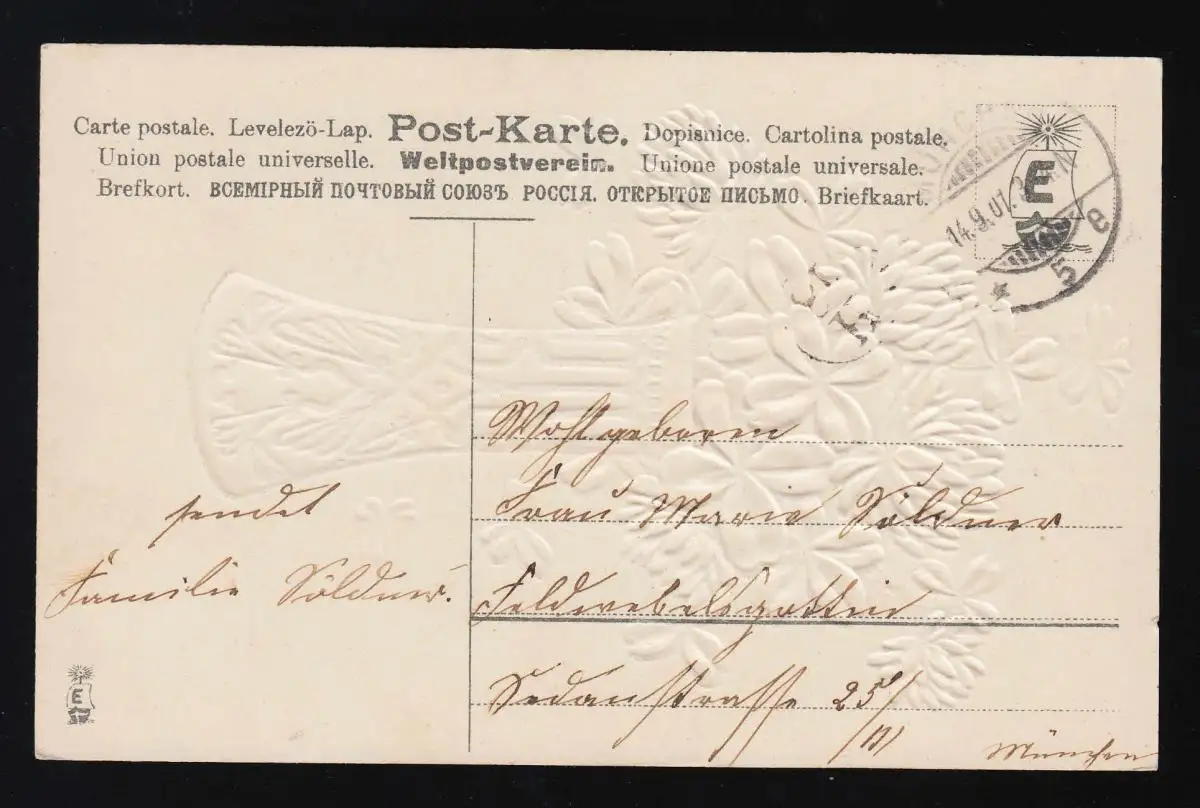 Carte postale. Levelezö-Lap. Post-Karte. Dopisnice. Cartolina postale.
Union postale universelle. Weltpostverein. Unione postale universale.
Brefkort. ВСЕМІРНЫЙ ПОЧТОВЫЙ СОЮЗЪ РОССІЯ. ОТКРЫТОЕ ПИСЬМО. Briefkaart.
E
14.9.07.
* 5 e
Wohlgeboren
Frau Marie Söldner
Feldwebelsgattin
Sedanstrasse 25/
München
sendet
Familie Söldner.
E